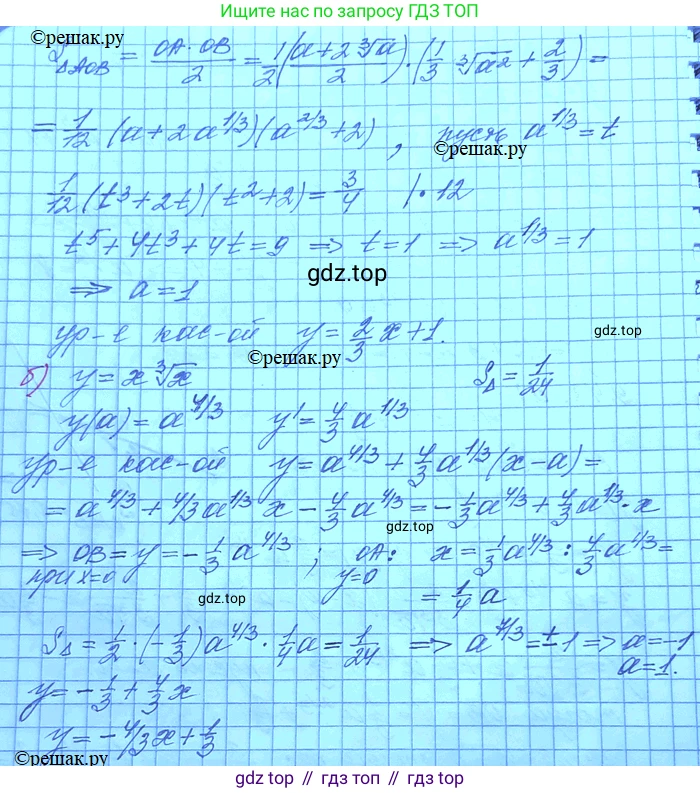 Ищите нас по запросу ГДЗ ТОП
©решак.ру
S△AOB = OA·OB/2 = 1/2 (a+2∛a)/2 · (1/3 ∛a2 + 2/3) =
= 1/12 (a+2a^1/3)(a^2/3+2), пусть a^1/3 = t
©решак.ру
1/12 (t^3+2t)(t^2+2) = 3/4 |·12
t^5+4t^3+4t=9 => t=1 => a^1/3=1
gdz.top
=> a=1
ур-е кас-ой y=2/3 x+1.
gdz.top
©решак.ру
б) y=x∛x S△=1/24
y(a)=a^4/3 y'=4/3 a^1/3
ур-е кас-ой y=a^4/3+4/3 a^1/3 (x-a)=
= a^4/3+4/3 a^1/3 x - 4/3 a^4/3 = -1/3 a^4/3 + 4/3 a^1/3·x
gdz.top
=> OB=y=-1/3 a^4/3; OA: x=1/3 a^4/3 : 4/3 a^1/3=
при x=0 y=0
gdz.top
= 1/4 a
S△=1/2·(-1/3)a^4/3·1/4 a=1/24 => a^7/3=±1 => a=-1
a=1.
y=-1/3+4/3 x
y=-4/3x+1/3
©решак.ру
©решак.ру
gdz top // гдз топ // gdz.top